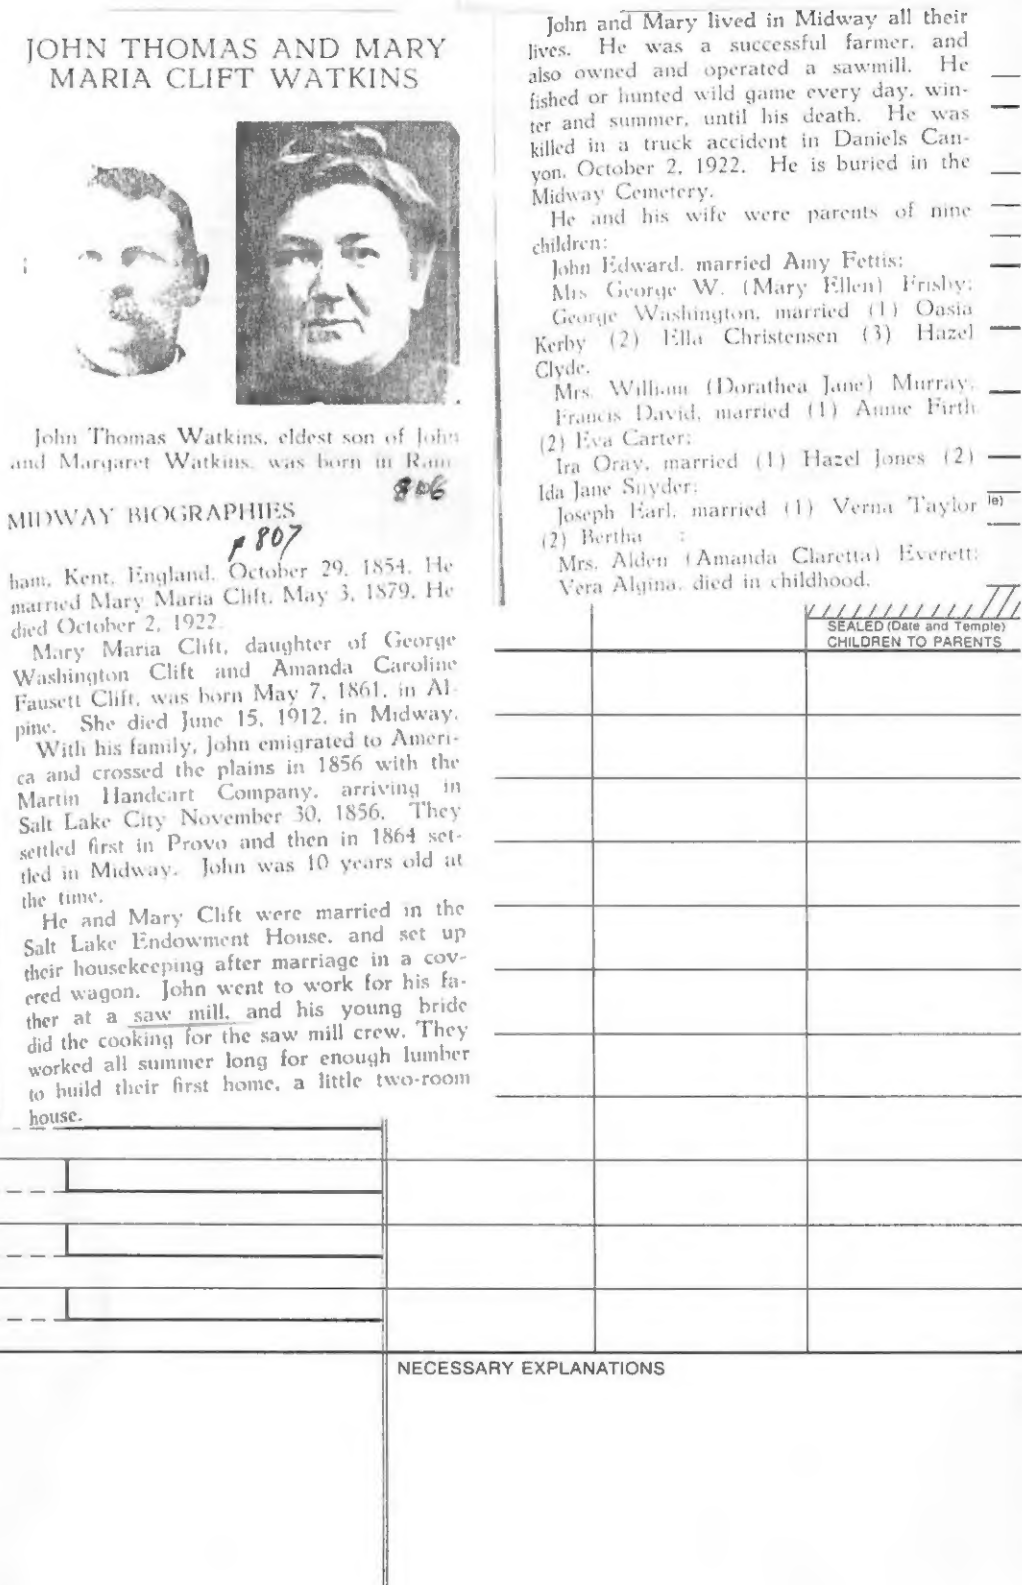 JOHN THOMAS AND MARY
MARIA CLIFT WATKINS
John Thomas Watkins, eldest son of John
and Margaret Watkins, was born in Rain
806
MIDWAY BIOGRAPHIES
p 807
ham, Kent, England, October 29, 1854. He
married Mary Maria Clift, May 3, 1879. He
died October 2, 1922.
Mary Maria Clift, daughter of George
Washington Clift and Amanda Caroline
Fausett Clift, was born May 7, 1861, in Al-
pine. She died June 15, 1912, in Midway.
With his family, John emigrated to Ameri-
ca and crossed the plains in 1856 with the
Martin Handcart Company, arriving in
Salt Lake City November 30, 1856. They
settled first in Provo and then in 1864 set-
tled in Midway. John was 10 years old at
the time.
He and Mary Clift were married in the
Salt Lake Endowment House, and set up
their housekeeping after marriage in a cov-
ered wagon. John went to work for his fa-
ther at a saw mill, and his young bride
did the cooking for the saw mill crew. They
worked all summer long for enough lumber
to build their first home, a little two-room
house.
John and Mary lived in Midway all their
lives. He was a successful farmer, and
also owned and operated a sawmill. He
fished or hunted wild game every day, win-
ter and summer, until his death. He was
killed in a truck accident in Daniels Can-
yon, October 2, 1922. He is buried in the
Midway Cemetery.
He and his wife were parents of nine
children:
John Edward, married Amy Fettis;
Mrs George W. (Mary Ellen) Frisby;
George Washington, married (1) Oasia
Kerby (2) Ella Christensen (3) Hazel
Clyde.
Mrs. William (Dorathea Jane) Murray,
Francis David, married (1) Annie Firth
(2) Eva Carter;
Ira Oray, married (1) Hazel Jones (2)
Ida Jane Snyder;
Joseph Earl, married (1) Verna Taylor
(2) Bertha :
Mrs. Alden (Amanda Claretta) Everett;
Vera Algina, died in childhood.
le)
SEALED (Date and Temple)
CHILDREN TO PARENTS
NECESSARY EXPLANATIONS